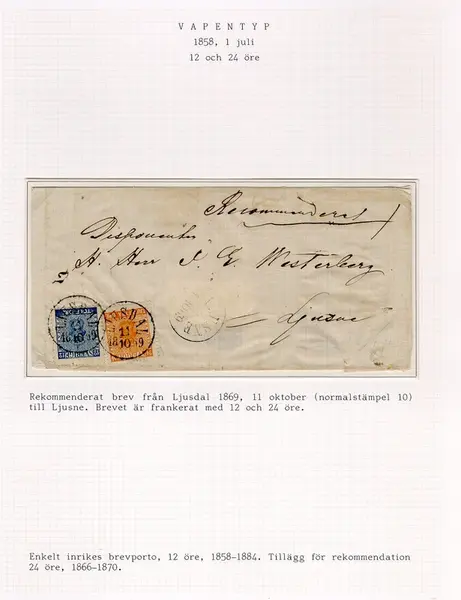 VAPENTYP
1858, 1 juli
12 och 24 öre
Recommenderat
Disponenten
H. Herr J. E. Westerberg
Ljusne
LJUSDAL
11
10
Rekommenderat brev från Ljusdal 1869, 11 oktober (normalstämpel 10)
till Ljusne. Brevet är frankerat med 12 och 24 öre.
Enkelt inrikes brevporto, 12 öre, 1858-1884. Tillägg för rekommendation
24 öre, 1866-1870.